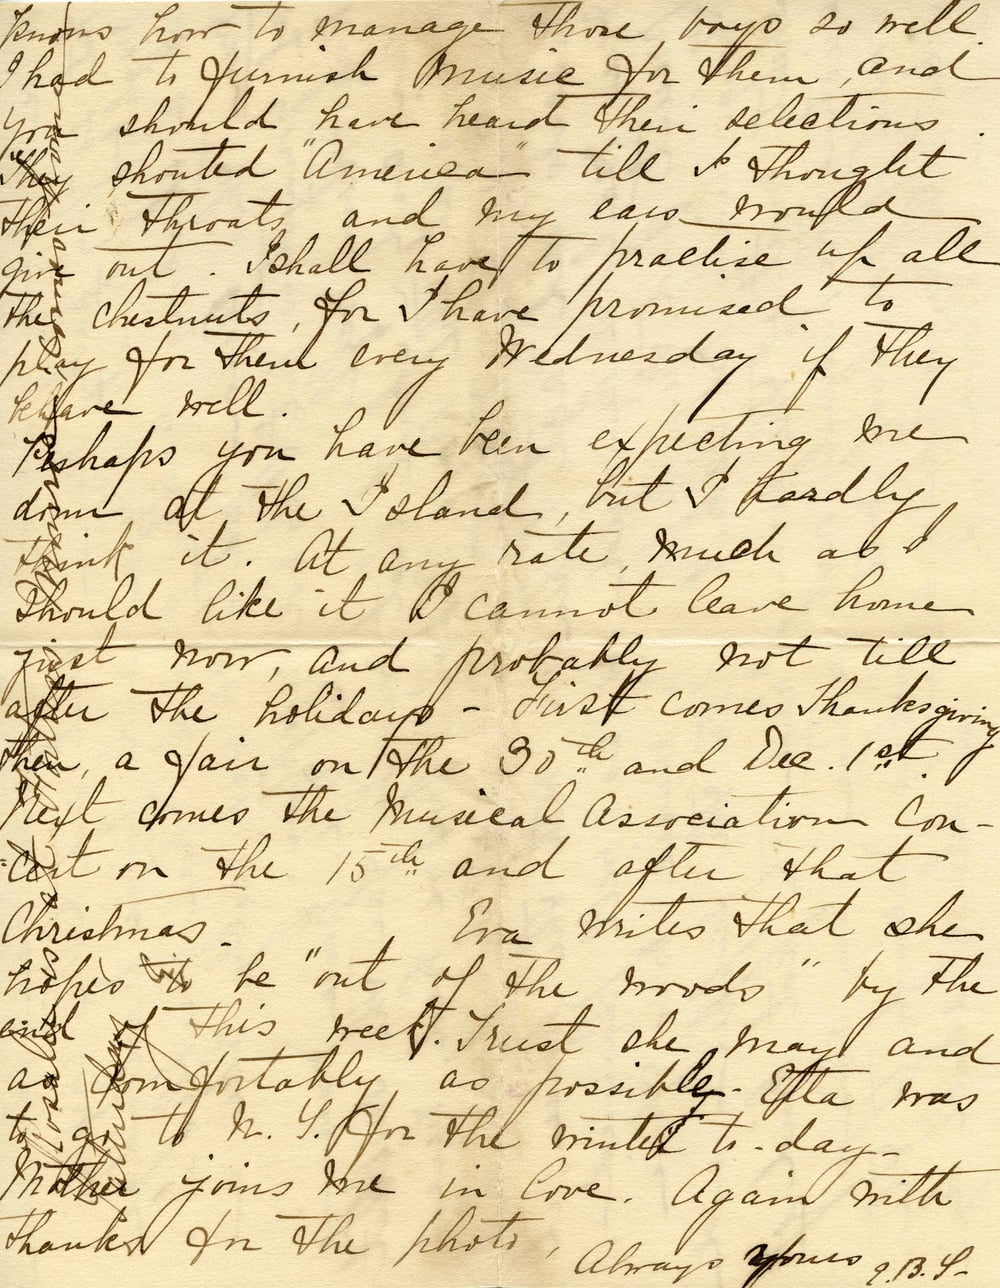 knows how to manage those boys so well.
I had to furnish music for them, and
you should have heard their selections.
They shouted "America" till I thought
their throats and my ears would
give out. I shall have to practise up all
the chestnuts, for I have promised to
play for them every Wednesday if they
behave well.
Perhaps you have been expecting me
down at the Island, but I hardly
think it. At any rate, much as I
should like it I cannot leave home
just now, and probably not till
after the holidays - First comes Thanksgiving
then, a fair on the 30th and Dec. 1st.
Next comes the Musical Association Con-
=cert on the 15th and after that
Christmas. Eva writes that she
hopes to be "out of the woods" by the
end of this week. Trust she may and
as comfortably as possible - Etta was
to go to N. Y. for the winter to-day -
Mother joins me in love. Again with
thanks for the photo,
Always yours J.B.S-